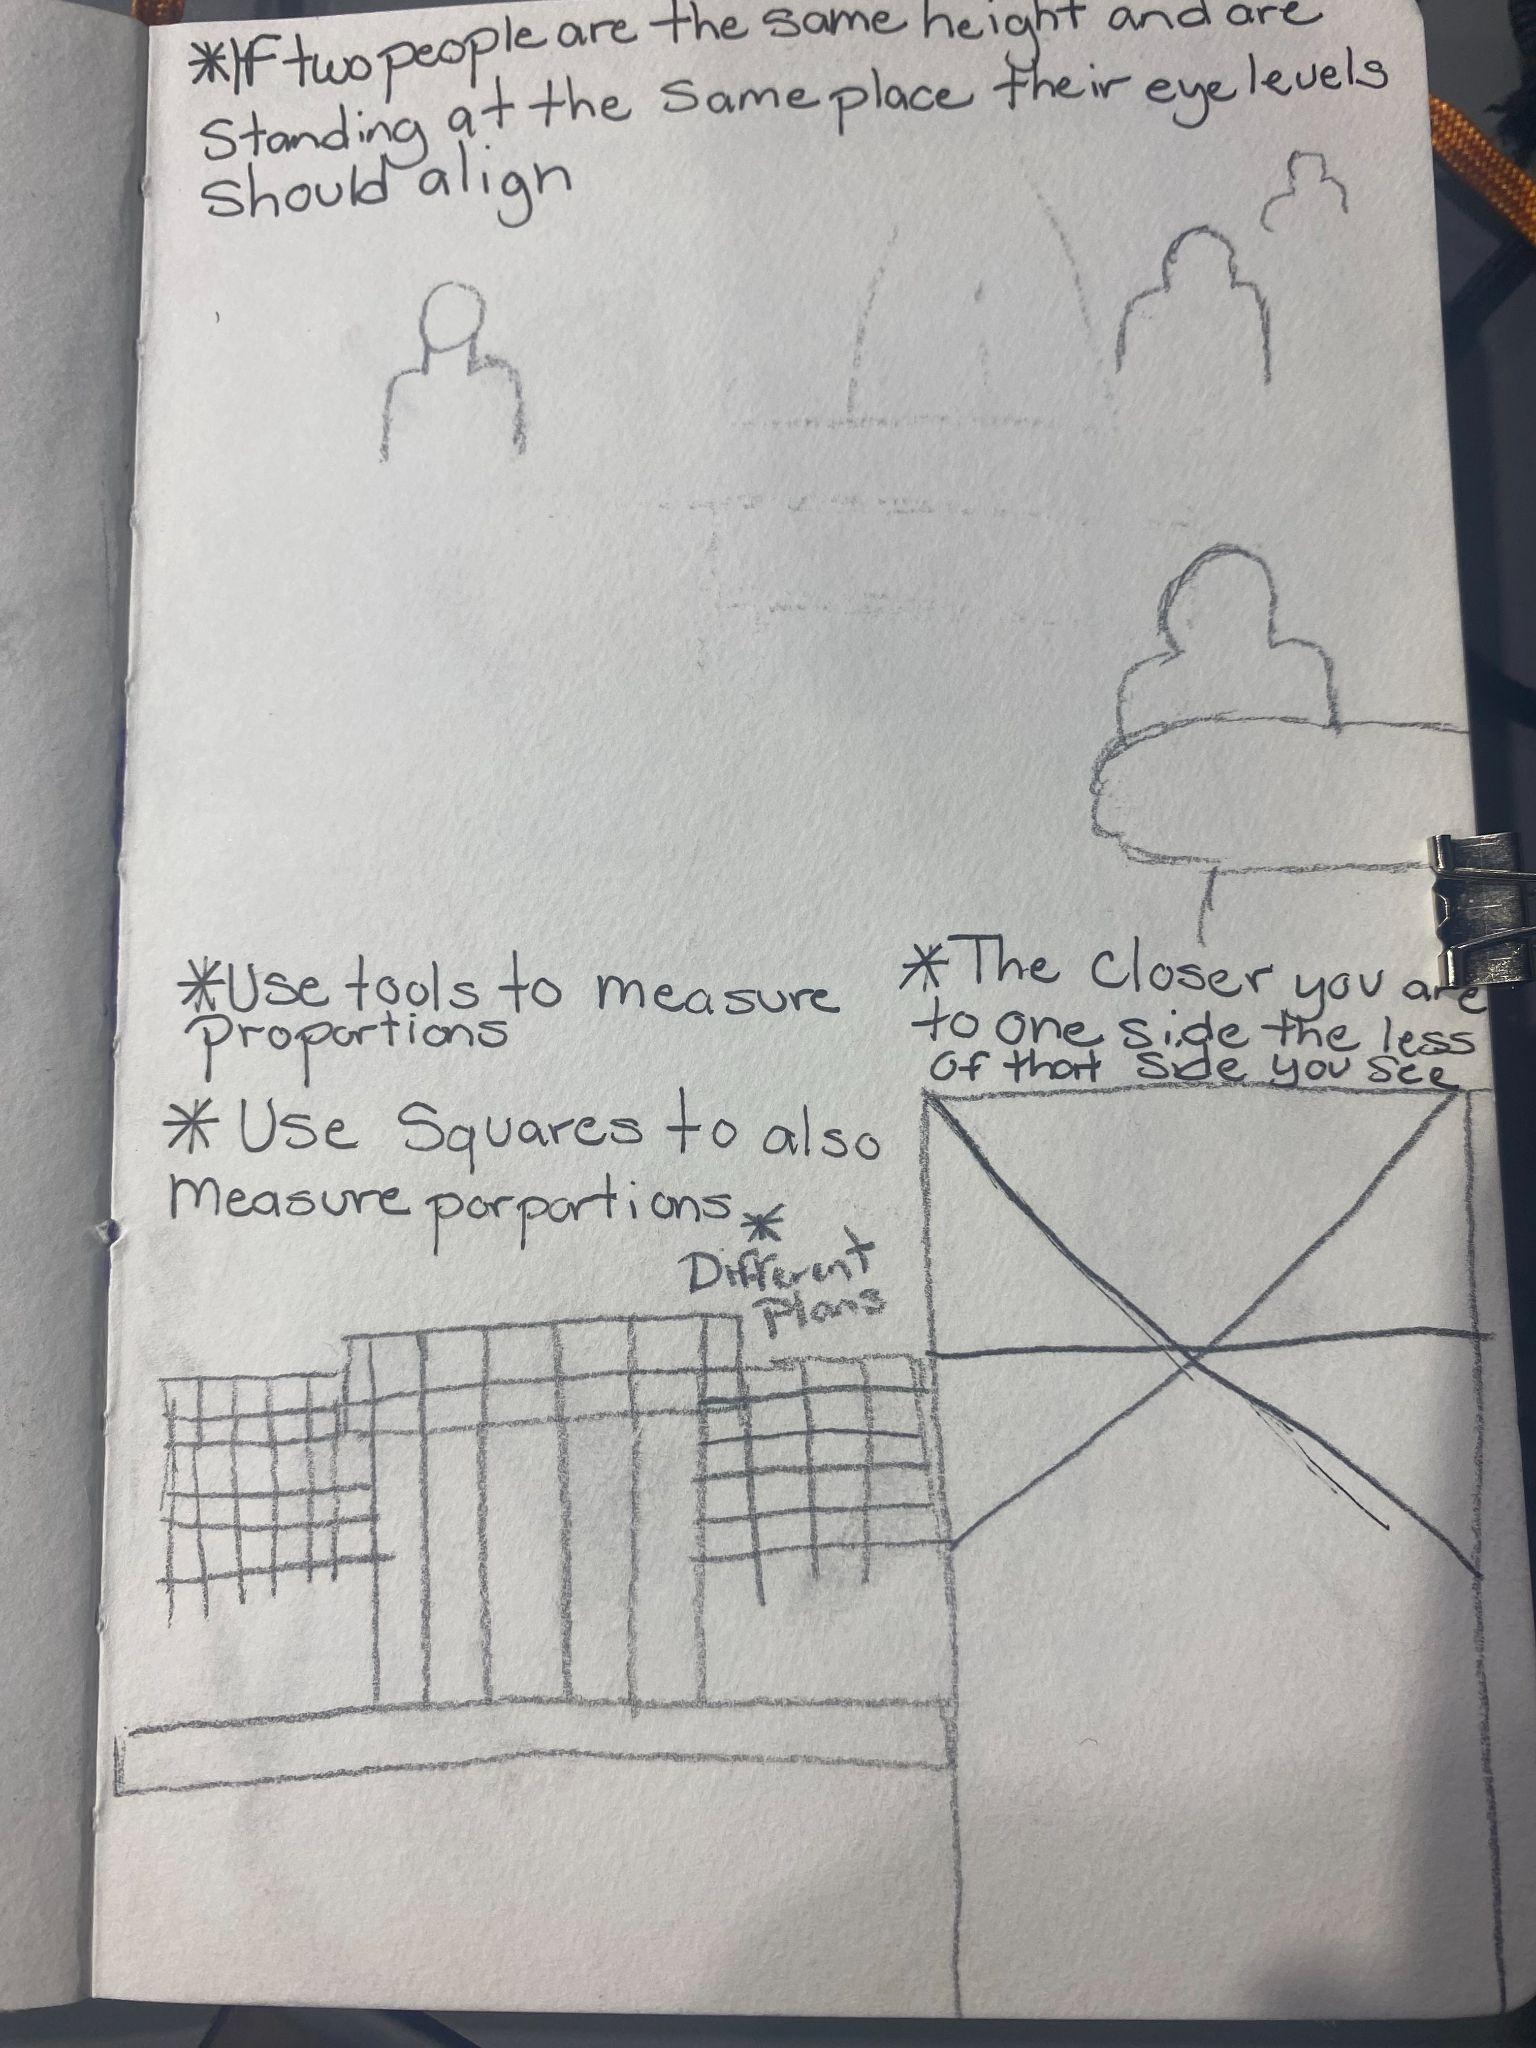 *If two people are the same height and are
Standing at the same place their eye levels
should align
*Use tools to measure
proportions
* Use Squares to also
measure porportions
*The closer you are
to one side the less
of that side you see
*
Different
Plans